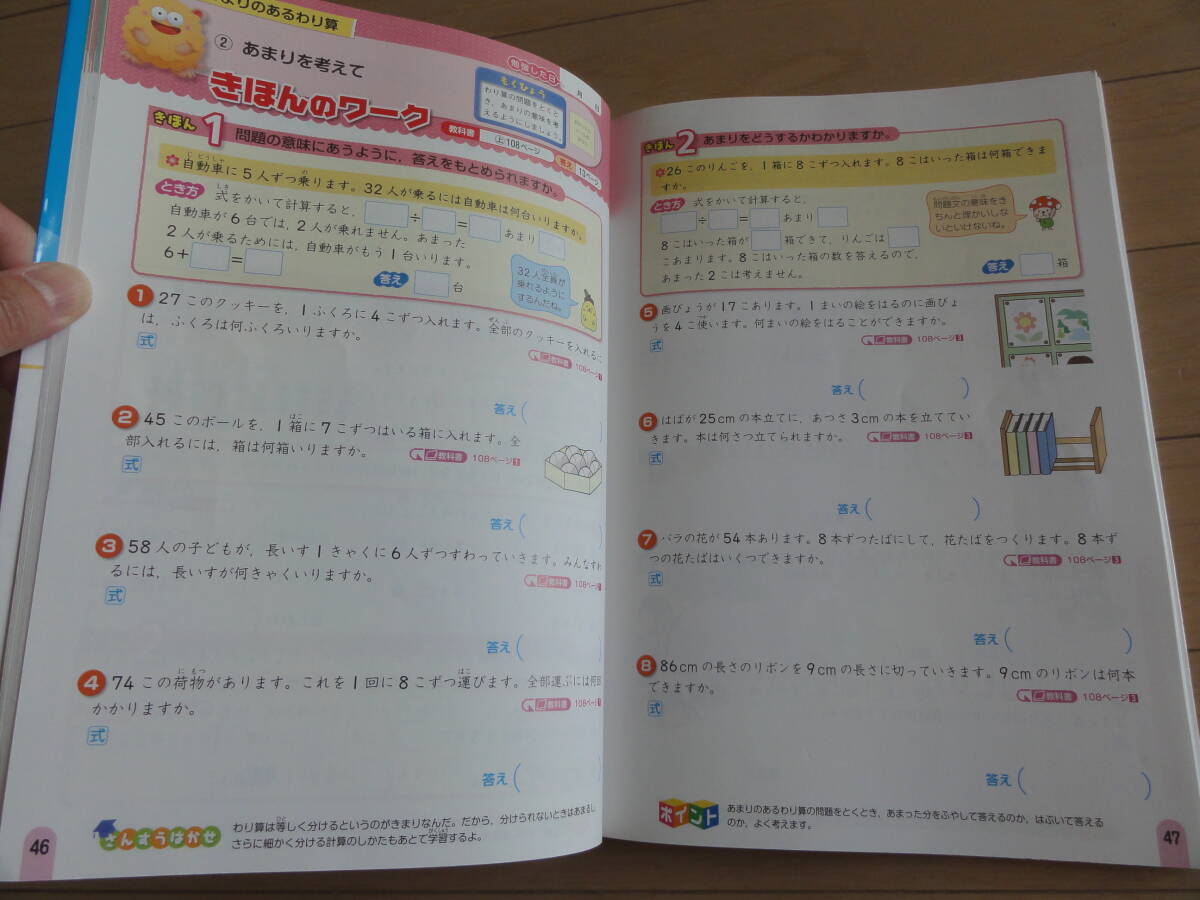 よりのあるわり算
② あまりを考えて
きほんのワーク
勉強した日 月 日
もくひょう
わり算の問題をとくと
き、あまりの意味を考
えるようにしましょう。
教科書 ㊤108ページ 答え 13ページ
きほん 1 問題の意味にあうように、答えをもとめられますか。
自動車に5人ずつ乗ります。32人が乗るには自動車は何台いりますか。
とき方 式をかいて計算すると、 ÷ = あまり
自動車が6台では、2人が乗れません。あまった
2人が乗るためには、自動車がもう1台いります。
6+ =
答え 台
32人全員が
乗れるように
するんだね。
1 27このクッキーを、1ふくろに4こずつ入れます。全部のクッキーを入れるに
は、ふくろは何ふくろいりますか。
教科書 108ページ1
式
答え( )
2 45このボールを、1箱に7こずつはいる箱に入れます。全
部入れるには、箱は何箱いりますか。
教科書 108ページ1
式
答え( )
3 58人の子どもが、長いす1きゃくに6人ずつすわっていきます。みんなすわ
るには、長いすが何きゃくいりますか。
教科書 108ページ
式
答え( )
4 74この荷物があります。これを1回に8こずつ運びます。全部運ぶには何回
かかりますか。
教科書 108ページ1
式
答え( )
さんすうはかせ
わり算は等しく分けるというのがきまりなんだ。だから、分けられないときはあまるし、
さらに細かく分ける計算のしかたもあとで学習するよ。
46
きほん 2 あまりをどうするかわかりますか。
26このりんごを、1箱に8こずつ入れます。8こはいった箱は何箱できま
すか。
とき方 式をかいて計算すると、
÷ = あまり
8こはいった箱が 箱できて、りんごは
こあまります。8こはいった箱の数を答えるので、
あまった2こは考えません。
答え 箱
問題文の意味をき
ちんと理かいしな
いといけないね。
5 画びょうが17こあります。1まいの絵をはるのに画びょ
うを4こ使います。何まいの絵をはることができますか。
教科書 108ページ3
式
答え( )
6 はばが25cmの本立てに、あつさ3cmの本を立ててい
きます。本は何さつ立てられますか。
教科書 108ページ3
式
答え( )
7 バラの花が54本あります。8本ずつたばにして、花たばをつくります。8本ず
つの花たばはいくつできますか。
教科書 108ページ3
式
答え( )
8 86cmの長さのリボンを9cmの長さに切っていきます。9cmのリボンは何本
できますか。
教科書 108ページ3
式
答え( )
ポイント
あまりのあるわり算の問題をとくとき、あまった分をふやして答えるのか、はぶいて答える
のか、よく考えます。
47